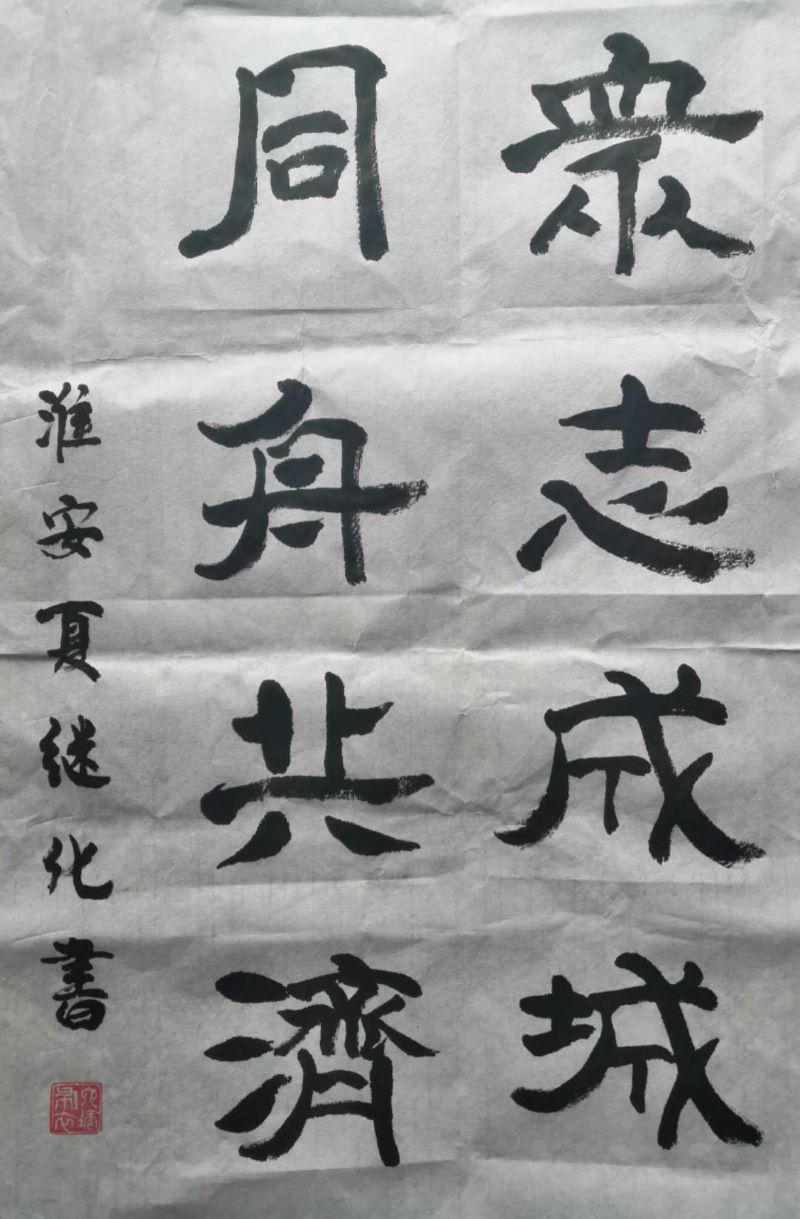 眾志成城
同舟共濟
淮安夏继化書